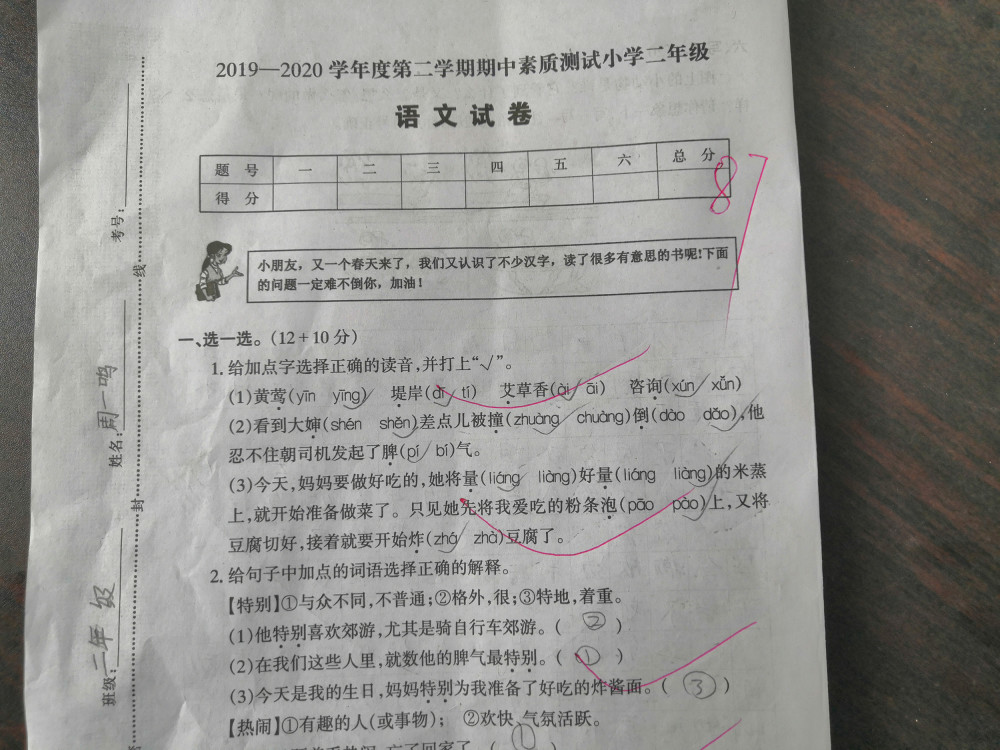 2019—2020 学年度第二学期期中素质测试小学二年级
语文试卷
题 号 一 二 三 四 五 六 总 分
得 分
8
小朋友，又一个春天来了，我们又认识了不少汉字，读了很多有意思的书呢！下面
的问题一定难不倒你，加油！
一、选一选。（12+10 分）
1. 给加点字选择正确的读音，并打上“√”。
(1)黄莺(yīn yīng√) 堤岸(dī√ tí) 艾草香(ài√ āi) 咨询(xún√ xǔn)
(2)看到大婶(shén shěn√)差点儿被撞(zhuàng√ chuàng)倒(dào dǎo√),他
忍不住朝司机发起了脾(pí√ bí)气。
(3)今天,妈妈要做好吃的,她将量(liáng√ liàng)好量(liáng liàng√)的米蒸
上,就开始准备做菜了。只见她先将我爱吃的粉条泡(pāo pào√)上,又将
豆腐切好,接着就要开始炸(zhá√ zhà)豆腐了。
2. 给句子中加点的词语选择正确的解释。
【特别】①与众不同,不普通;②格外,很;③特地,着重。
(1)他特别喜欢郊游,尤其是骑自行车郊游。( ② )
(2)在我们这些人里,就数他的脾气最特别。( ① )
(3)今天是我的生日,妈妈特别为我准备了好吃的炸酱面。( ③ )
【热闹】①有趣的人(或事物); ②欢快、气氛活跃。
忘了回家了。( ① )
考号:
姓名: 周一鸣
班级: 二年级
线
封